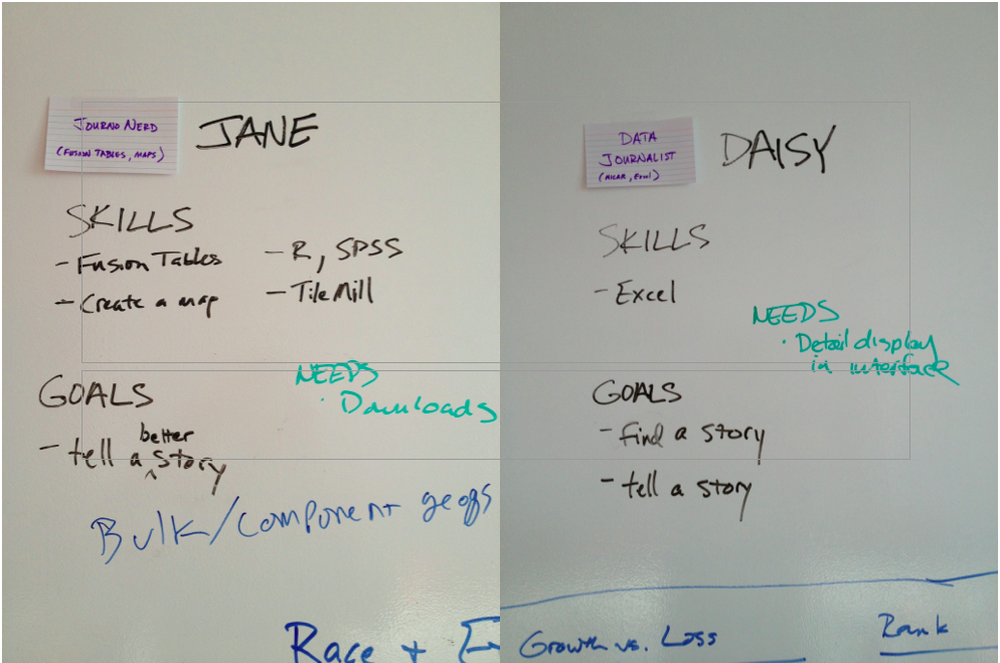 JOURNO NERD
(FUSION TABLES, MAPS)
JANE
SKILLS
- Fusion Tables
- Create a map
- R, SPSS
- TileMill
NEEDS
· Downloads
GOALS
- tell a better story
Bulk/component geogs
Race +
DATA
JOURNALIST
(NICAR, Excel)
DAISY
SKILLS
- Excel
NEEDS
· Detail display
in interface
GOALS
- find a story
- tell a story
Growth vs. Loss
Rank